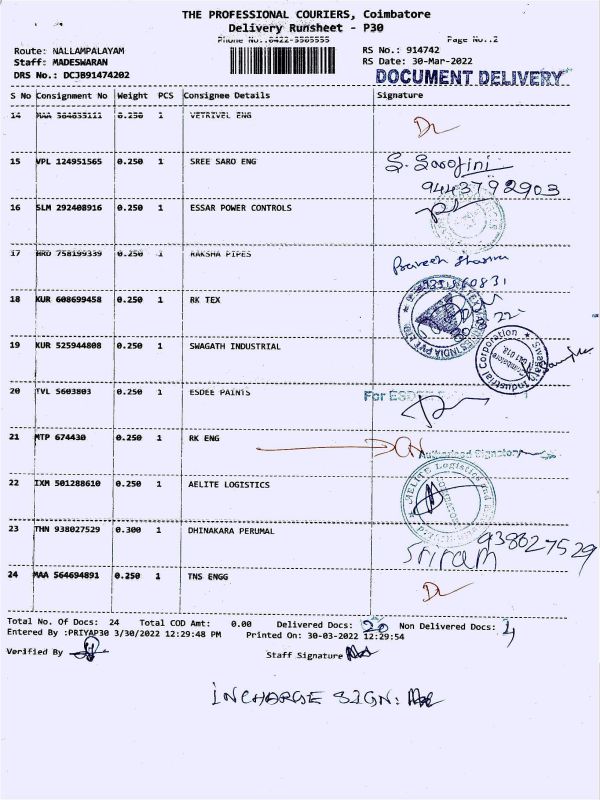 THE PROFESSIONAL COURIERS, Coimbatore
Delivery Runsheet - P30
Page No.:2
Route: NALLAMPALAYAM RS No.: 914742
Staff: MADESWARAN RS Date: 30-Mar-2022
DRS No.: DCJB91474202 DOCUMENT DELIVERY
S No Consignment No Weight PCS Consignee Details Signature
14 MAA 0.250 1 VETRIVEL ENG
15 VPL 124951565 0.250 1 SREE SARO ENG S. Sarojini
9443792903
16 SLM 292408916 0.250 1 ESSAR POWER CONTROLS
17 758199339 0.250 1 RAKSHA PIPES Praveen Sharma
18 KUR 608699458 0.250 1 RK TEX
19 KUR 525944808 0.250 1 SWAGATH INDUSTRIAL Swagath Industrial Corporation
20 TVL 5603803 0.250 1 ESDEE PAINTS For
21 MTP 674430 0.250 1 RK ENG Authorised Signatory
22 IXM 501288610 0.250 1 AELITE LOGISTICS
23 THN 938027529 0.300 1 DHINAKARA PERUMAL Sriram 938627529
24 MAA 564694891 0.250 1 TNS ENGG
Total No. Of Docs: 24 Total COD Amt: 0.00 Delivered Docs: 20 Non Delivered Docs: 4
Entered By :PRIYAP30 3/30/2022 12:29:48 PM Printed On: 30-03-2022 12:29:54
Verified By Staff Signature
INCHARGE SIGN: